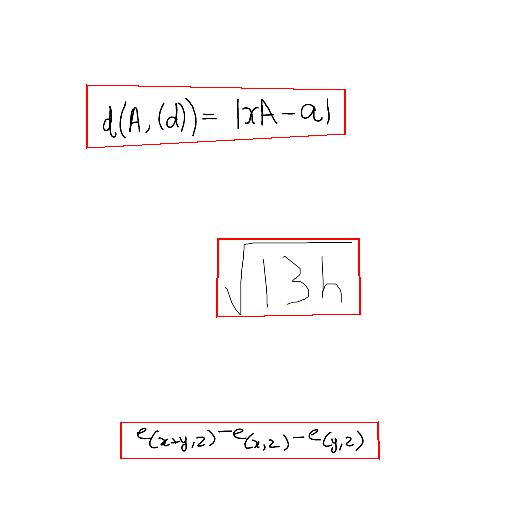 d(A,(d))=|xA-a|
√13h
e(x+y,z)-e(x,z)-e(y,z)